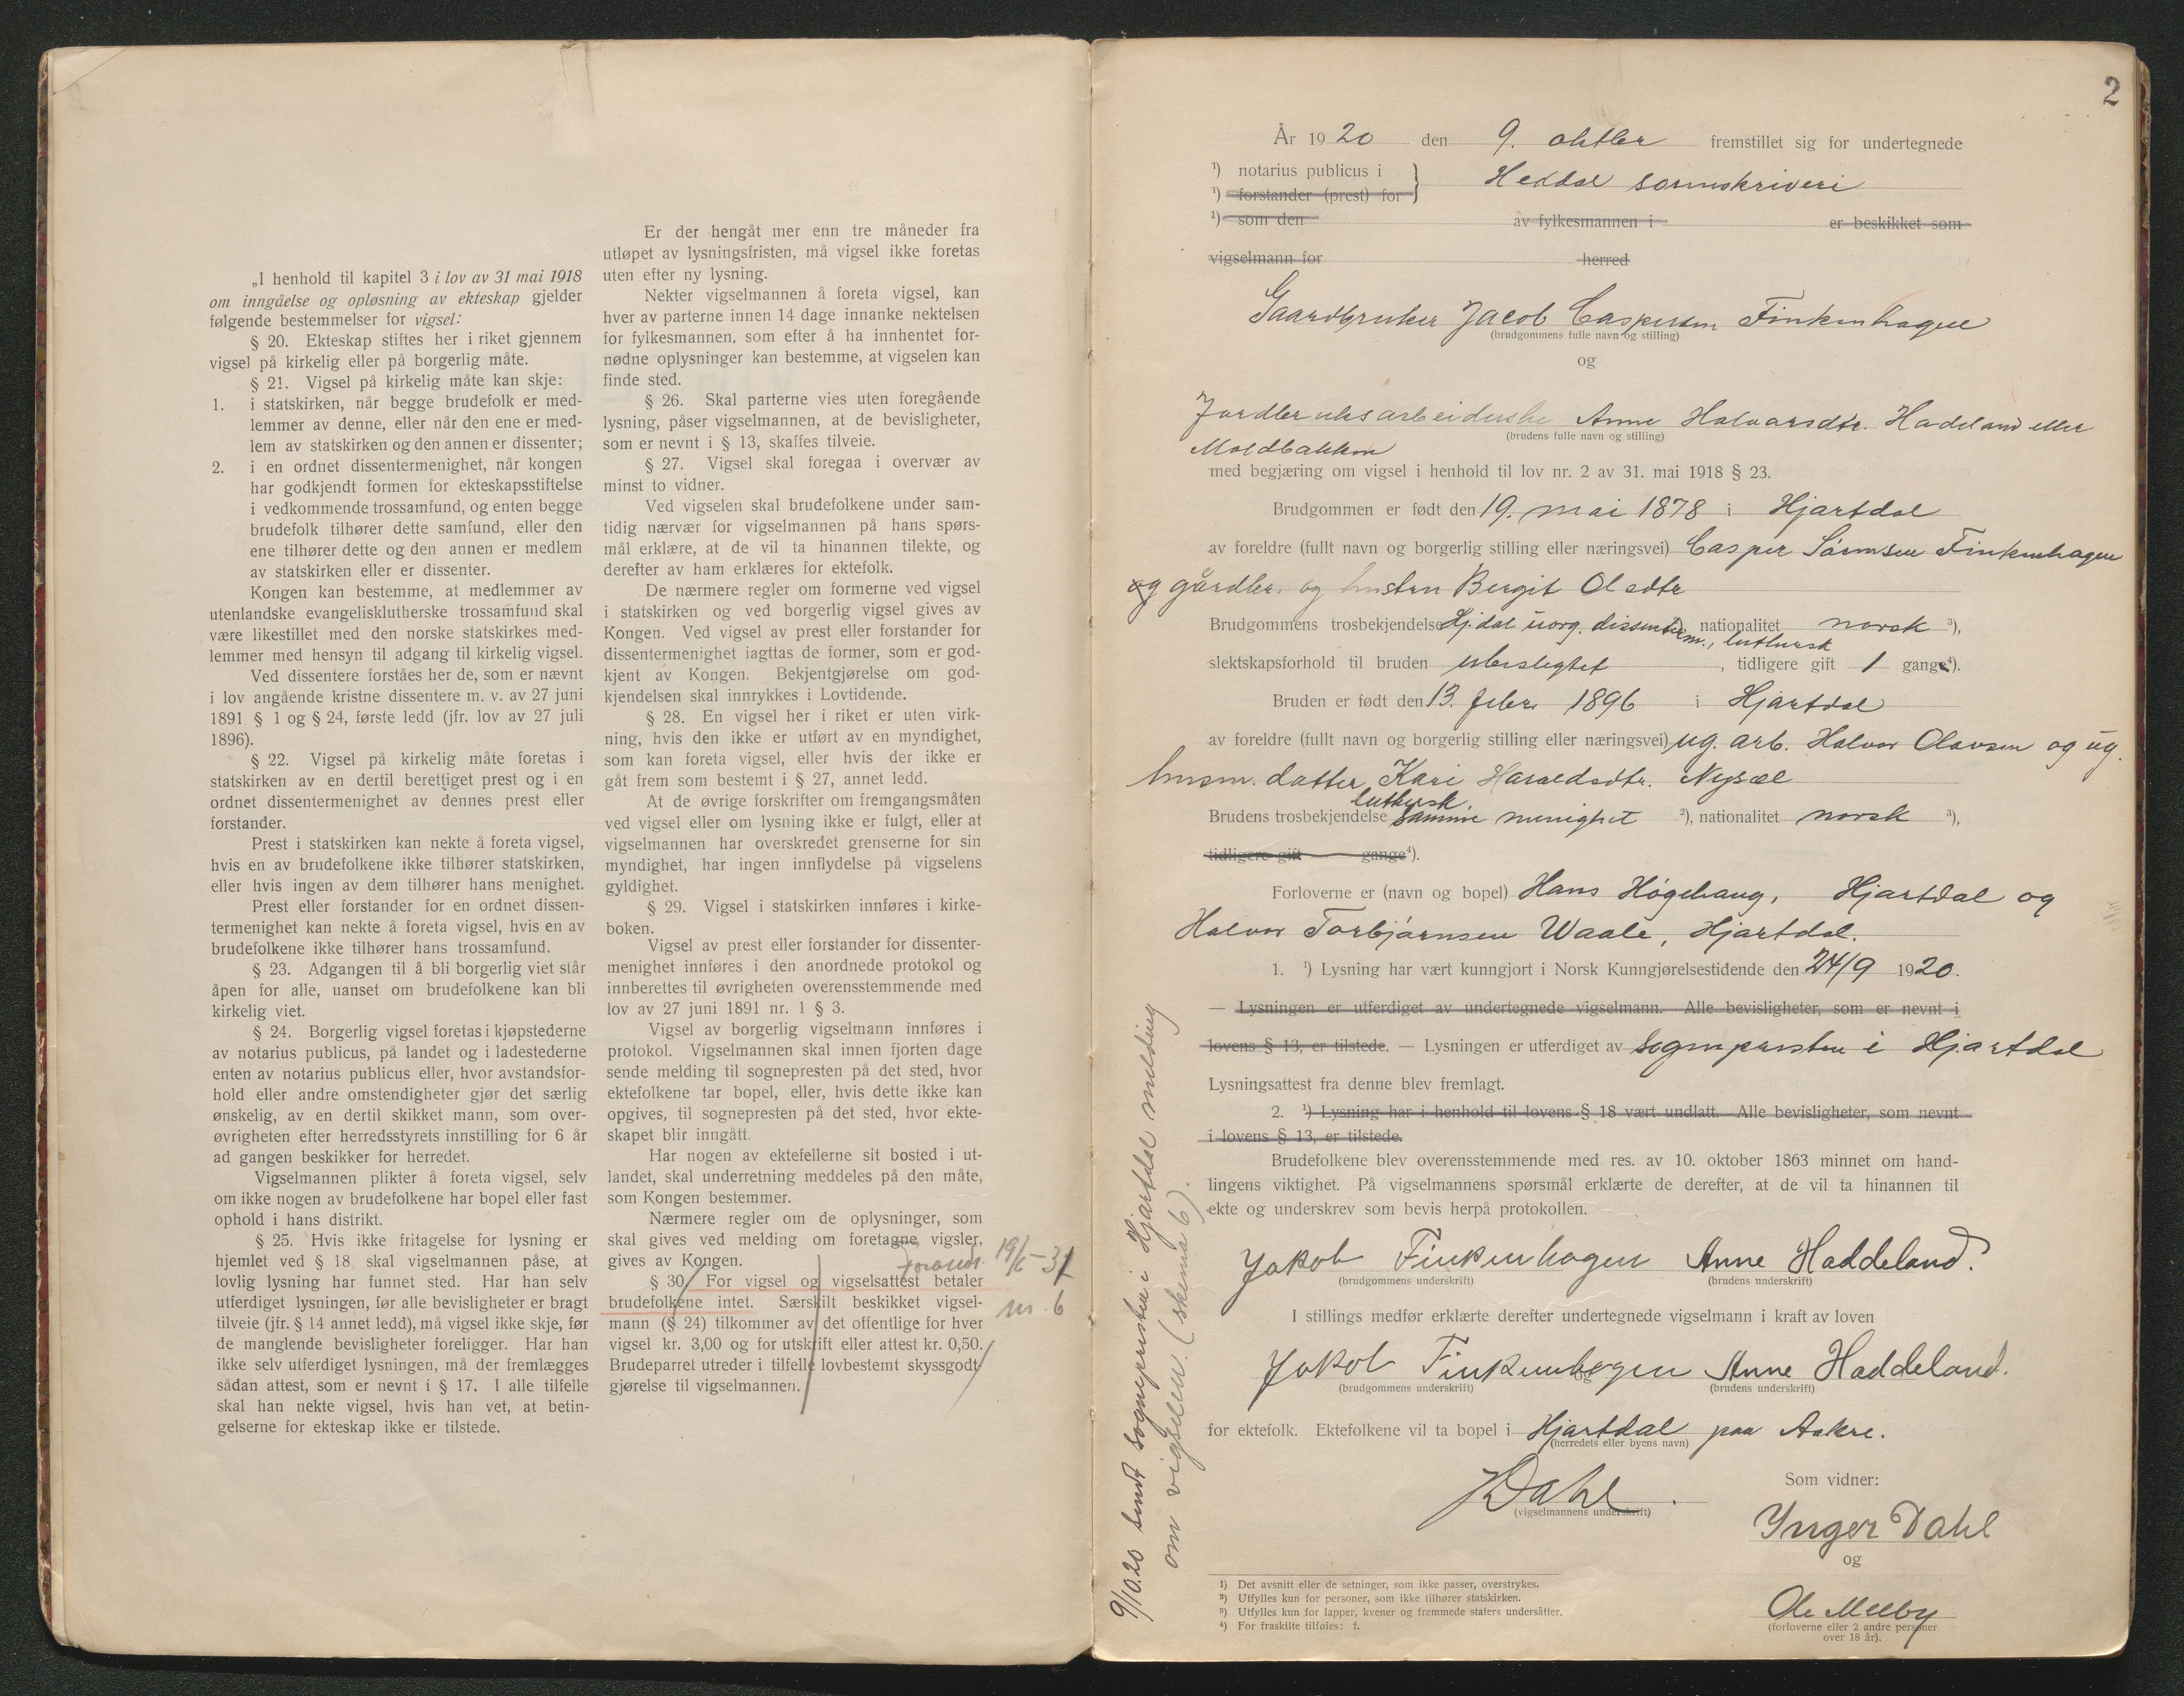 „I henhold til kapitel 3 i lov av 31 mai 1918
om inngåelse og opløsning av ekteskap gjelder
følgende bestemmelser for vigsel:
§ 20. Ekteskap stiftes her i riket gjennem
vigsel på kirkelig eller på borgerlig måte.
§ 21. Vigsel på kirkelig måte kan skje:
1. i statskirken, når begge brudefolk er med-
lemmer av denne, eller når den ene er med-
lem av statskirken og den annen er dissenter;
2. i en ordnet dissentermenighet, når kongen
har godkjendt formen for ekteskapsstiftelse
i vedkommende trossamfund, og enten begge
brudefolk tilhører dette samfund, eller den
ene tilhører dette og den annen er medlem
av statskirken eller er dissenter.
Kongen kan bestemme, at medlemmer av
utenlandske evangelisklutherske trossamfund skal
være likestillet med den norske statskirkes med-
lemmer med hensyn til adgang til kirkelig vigsel.
Ved dissentere forståes her de, som er nævnt
i lov angående kristne dissentere m. v. av 27 juni
1891 § 1 og § 24, første ledd (jfr. lov av 27 juli
1896).
§ 22. Vigsel på kirkelig måte foretas i
statskirken av en dertil berettiget prest og i en
ordnet dissentermenighet av dennes prest eller
forstander.
Prest i statskirken kan nekte å foreta vigsel,
hvis en av brudefolkene ikke tilhører statskirken,
eller hvis ingen av dem tilhører hans menighet.
Prest eller forstander for en ordnet dissen-
termenighet kan nekte å foreta vigsel, hvis en av
brudefolkene ikke tilhører hans trossamfund.
§ 23. Adgangen til å bli borgerlig viet står
åpen for alle, uanset om brudefolkene kan bli
kirkelig viet.
§ 24. Borgerlig vigsel foretas i kjøpstederne
av notarius publicus, på landet og i ladestederne
enten av notarius publicus eller, hvor avstandsfor-
hold eller andre omstendigheter gjør det særlig
ønskelig, av en dertil skikket mann, som over-
øvrigheten efter herredsstyrets innstilling for 6 år
ad gangen beskikker for herredet.
Vigselmannen plikter å foreta vigsel, selv
om ikke nogen av brudefolkene har bopel eller fast
ophold i hans distrikt.
§ 25. Hvis ikke fritagelse for lysning er
hjemlet ved § 18 skal vigselmannen påse, at
lovlig lysning har funnet sted. Har han selv
utferdiget lysningen, før alle bevisligheter er bragt
tilveie (jfr. § 14 annet ledd), må vigsel ikke skje, før
de manglende bevisligheter foreligger. Har han
ikke selv utferdiget lysningen, må der fremlægges
sådan attest, som er nevnt i § 17. I alle tilfelle
skal han nekte vigsel, hvis han vet, at betin-
gelserne for ekteskap ikke er tilstede.
Er der hengåt mer enn tre måneder fra
utløpet av lysningsfristen, må vigsel ikke foretas
uten efter ny lysning.
Nekter vigselmannen å foreta vigsel, kan
hver av parterne innen 14 dage innanke nektelsen
for fylkesmannen, som efter å ha innhentet for-
nødne oplysninger kan bestemme, at vigselen kan
finde sted.
§ 26. Skal parterne vies uten foregående
lysning, påser vigselmannen, at de bevisligheter,
som er nevnt i § 13, skaffes tilveie.
§ 27. Vigsel skal foregaa i overvær av
minst to vidner.
Ved vigselen skal brudefolkene under sam-
tidig nærvær for vigselmannen på hans spørs-
mål erklære, at de vil ta hinannen tilekte, og
derefter av ham erklæres for ektefolk.
De nærmere regler om formerne ved vigsel
i statskirken og ved borgerlig vigsel gives av
Kongen. Ved vigsel av prest eller forstander for
dissentermenighet iagttas de former, som er god-
kjent av Kongen. Bekjentgjørelse om god-
kjendelsen skal innrykkes i Lovtidende.
§ 28. En vigsel her i riket er uten virk-
ning, hvis den ikke er utført av en myndighet,
som kan foreta vigsel, eller hvis der ikke er
gåt frem som bestemt i § 27, annet ledd.
At de øvrige forskrifter om fremgangsmåten
ved vigsel eller om lysning ikke er fulgt, eller at
vigselmannen har overskredet grenserne for sin
myndighet, har ingen innflydelse på vigselens
gyldighet.
§ 29. Vigsel i statskirken innføres i kirke-
boken.
Vigsel av prest eller forstander for dissenter-
menighet innføres i den anordnede protokol og
innberettes til øvrigheten overensstemmende med
lov av 27 juni 1891 nr. 1 § 3.
Vigsel av borgerlig vigselmann innføres i
protokol. Vigselmannen skal innen fjorten dage
sende melding til sognepresten på det sted, hvor
ektefolkene tar bopel, eller, hvis dette ikke kan
opgives, til sognepresten på det sted, hvor ekte-
skapet blir inngått.
Har nogen av ektefellerne sit bosted i ut-
landet, skal underretning meddeles på den måte,
som Kongen bestemmer.
Nærmere regler om de oplysninger, som
skal gives ved melding om foretagne vigsler,
gives av Kongen.
Forandr. 19/6-31
nr. 6
§ 30. For vigsel og vigselsattest betaler
brudefolkene intet. Særskilt beskikket vigsel-
mann (§ 24) tilkommer av det offentlige for hver
vigsel kr. 3,00 og for utskrift eller attest kr. 0,50.
Brudeparret utreder i tilfelle lovbestemt skyssgodt-
gjørelse til vigselmannen.
2
År 1920 den 9. oktber fremstillet sig for undertegnede
¹) notarius publicus i } Heddal sorenskriveri
¹) forstander (prest) for
¹) som den av fylkesmannen i er beskikket som
vigselmann for herred
Gaardbruker Jacob Caspersen Finkenhagen
(brudgommens fulle navn og stilling)
og
Jordbruksarbeiderske Anne Halvorsdtr. Hadeland eller
(brudens fulle navn og stilling)
Moldbakken
med begjæring om vigsel i henhold til lov nr. 2 av 31. mai 1918 § 23.
Brudgommen er født den 19. mai 1878 i Hjartdal
av foreldre (fullt navn og borgerlig stilling eller næringsvei) Casper Sørensen Finkenhagen
og gårdbr. og hustru Bergit Olsdtr
Brudgommens trosbekjendelse Hj.dal uorg. dissenterm., luthersk nationalitet norsk ³),
slektskapsforhold til bruden ubeslegtet, tidligere gift 1 gang⁴).
Bruden er født den 13. febr. 1896 i Hjartdal
av foreldre (fullt navn og borgerlig stilling eller næringsvei) ug. arb. Halvor Olavsen og ug.
husm. datter Kari Haraldsdtr. Nysæl
luthersk.
Brudens trosbekjendelse samme menighet ²), nationalitet norsk ³),
tidligere gift gange⁴).
Forloverne er (navn og bopel) Hans Høgehaug, Hjartdal og
Halvor Torbjørnsen Waale, Hjartdal.
1. ¹) Lysning har vært kunngjort i Norsk Kunngjørelsestidende den 24/9 1920.
— Lysningen er utferdiget av undertegnede vigselmann. Alle bevisligheter, som er nevnt i
lovens § 13, er tilstede. — Lysningen er utferdiget av sognepresten i Hjartdal
Lysningsattest fra denne blev fremlagt.
2. ¹) Lysning har i henhold til lovens § 18 vært undlatt. Alle bevisligheter, som nevnt
i lovens § 13, er tilstede.
Brudefolkene blev overensstemmende med res. av 10. oktober 1863 minnet om hand-
lingens viktighet. På vigselmannens spørsmål erklærte de derefter, at de vil ta hinannen til
ekte og underskrev som bevis herpå protokollen.
Jakob Finkenhagen Anne Haddeland.
(brudgommens underskrift) (brudens underskrift)
I stillings medfør erklærte derefter undertegnede vigselmann i kraft av loven
Jakob Finkenhagen Anne Haddeland.
(brudgommens underskrift) (brudens underskrift)
for ektefolk. Ektefolkene vil ta bopel i Hjartdal paa Aakre.
(herredets eller byens navn)
Dahl.
(vigselmannens underskrift)
Som vidner:
Ynger Dahl
og
Ole Melby
(forloverne eller 2 andre personer
over 18 år).
¹) Det avsnitt eller de setninger, som ikke passer, overstrykes.
²) Utfylles kun for personer, som ikke tilhører statskirken.
³) Utfylles kun for lapper, kvener og fremmede staters undersåtter.
⁴) For fraskilte tilføies: f.
9/10.20 sendt sognepresten i Hjartdal melding
om vigselen (skema 6).